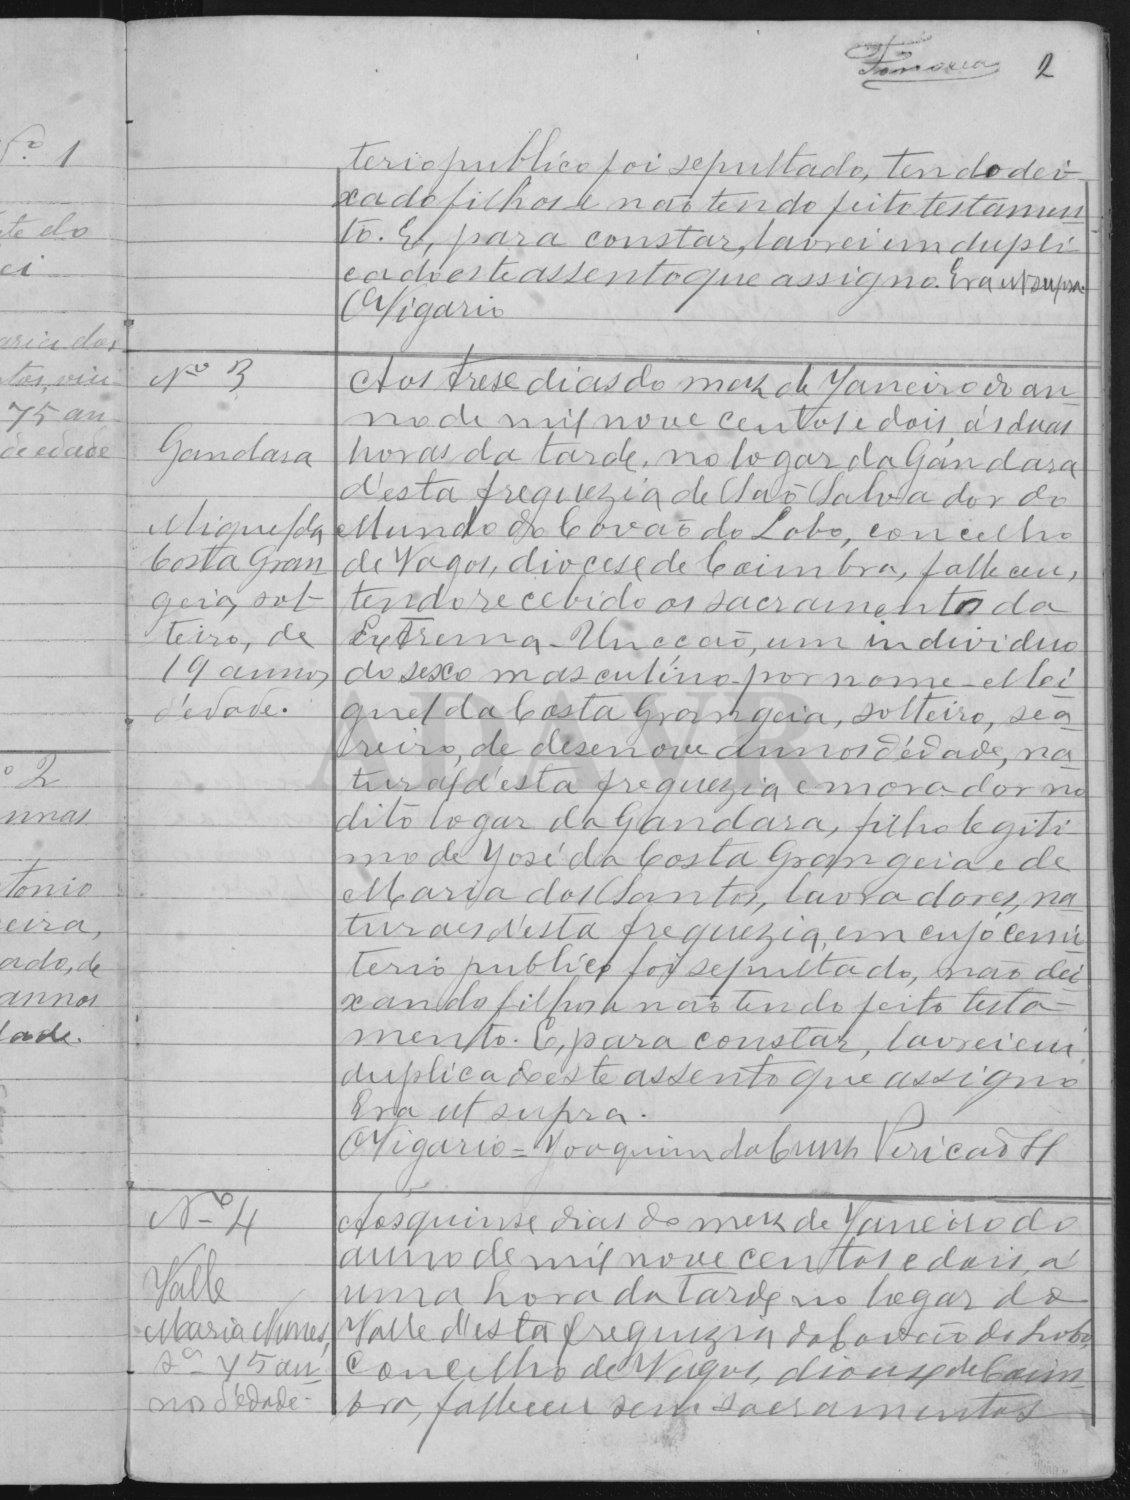 2
terio publico foi sepultado, tendo dei-
xado filhos e não tendo feito testamen
to. E, para constar, lavrei em dupli
cado este assento que assigno. Era ut supra.
O Vigario
Nº 3
Gandara
Miguel da
Costa Gran
geia, sol-
teiro, de
19 annos
d'edade.
Aos trese dias do mez de Janeiro do an
no de mil nove centos e dois, ás duas
horas da tarde, no logar da Gandara
d'esta freguezia de São Salvador do
Mundo do Covão do Lobo, concelho
de Vagos, diocese de Coimbra, falleceu,
tendo recebido os sacramentos da
Extrema-Uncção, um individuo
do sexo masculino por nome - Mi
guel da Costa Grangeia, solteiro, sea
reiro, de desenove annos d'edade, na
tural d'esta freguezia e morador no
dito logar da Gandara, filho legiti
mo de José da Costa Grangeia e de
Maria dos Santos, lavradores, na
turaes d'esta freguezia, em cujo cemi
terio publico foi sepultado, não dei
xando filhos e não tendo feito testa-
mento. E, para constar, lavrei em
duplicado este assento que assigno
Era ut supra.
O Vigario = Joaquim da Cruz Pericão
Nº 4
Valle
Maria Nunes,
75 an
nos d'edade-
Aos quinse dias do mez de Janeiro do
anno de mil nove centos e dois, á
uma hora da tarde no logar do
Valle d'esta freguezia do Covão do Lobo,
concelho de Vagos, diocese de Coim
bra, falleceu sem sacramentos
º 1
te do
ei
aria dos
tos, viu
75 an
de edade
º 2
nnas
tonio
eira,
ado, de
annos
dade.
ADAVR